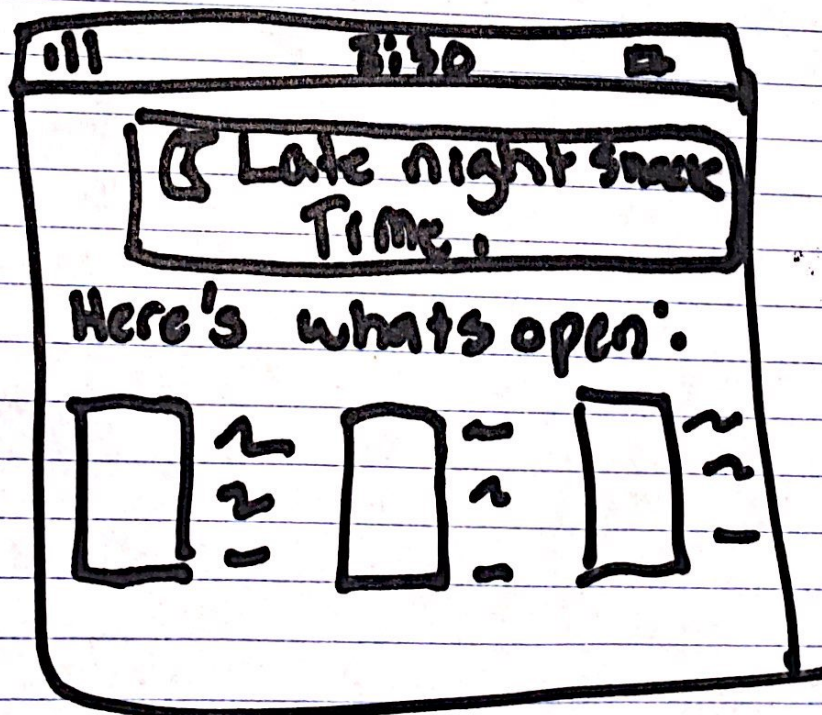 3:30
Late night snack
Time.
Here's whats open: